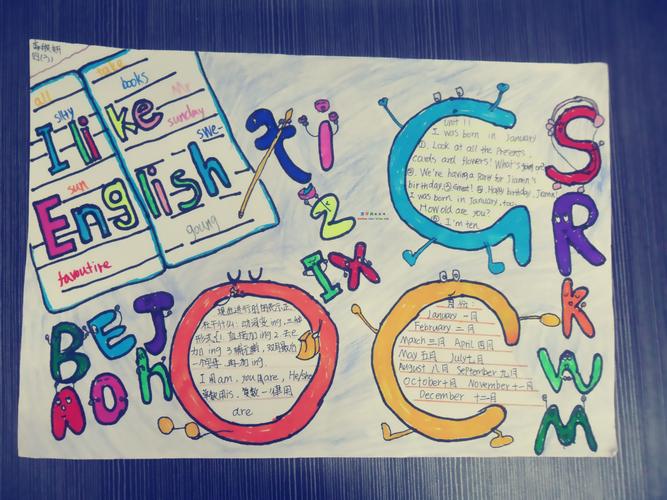 四(3)
all
take
silty
books
Mr
I like
sunday
swe-
sun
English
young
favoutire
unit 11
I was born in January!
①. Look at all the presents,
cards and flowers! What's
②. We're having a Party for Jiamin's
birthday. ③ Great! ④. Happy birthday, Jiamin!
I was born in January, too.
How old are you?
⑤ I'm ten.
i
Z
I X
S
R
K
W
M
B E J
A O h
现在进行时用表示正
在干什么: 动词变 ing, 三种
形式 1. 直接加 ing 2. 去 e
加 ing 3.
一个字母, 再加 ing.
I 用 am, you 用 are, He/She
单数用 is, 复数一律用
are
月份:
January 一月
February 二月
March 三月 April 四月
May 五月 July 七月
August 八月 September 九月
October 十月 November 十一月
December 十二月